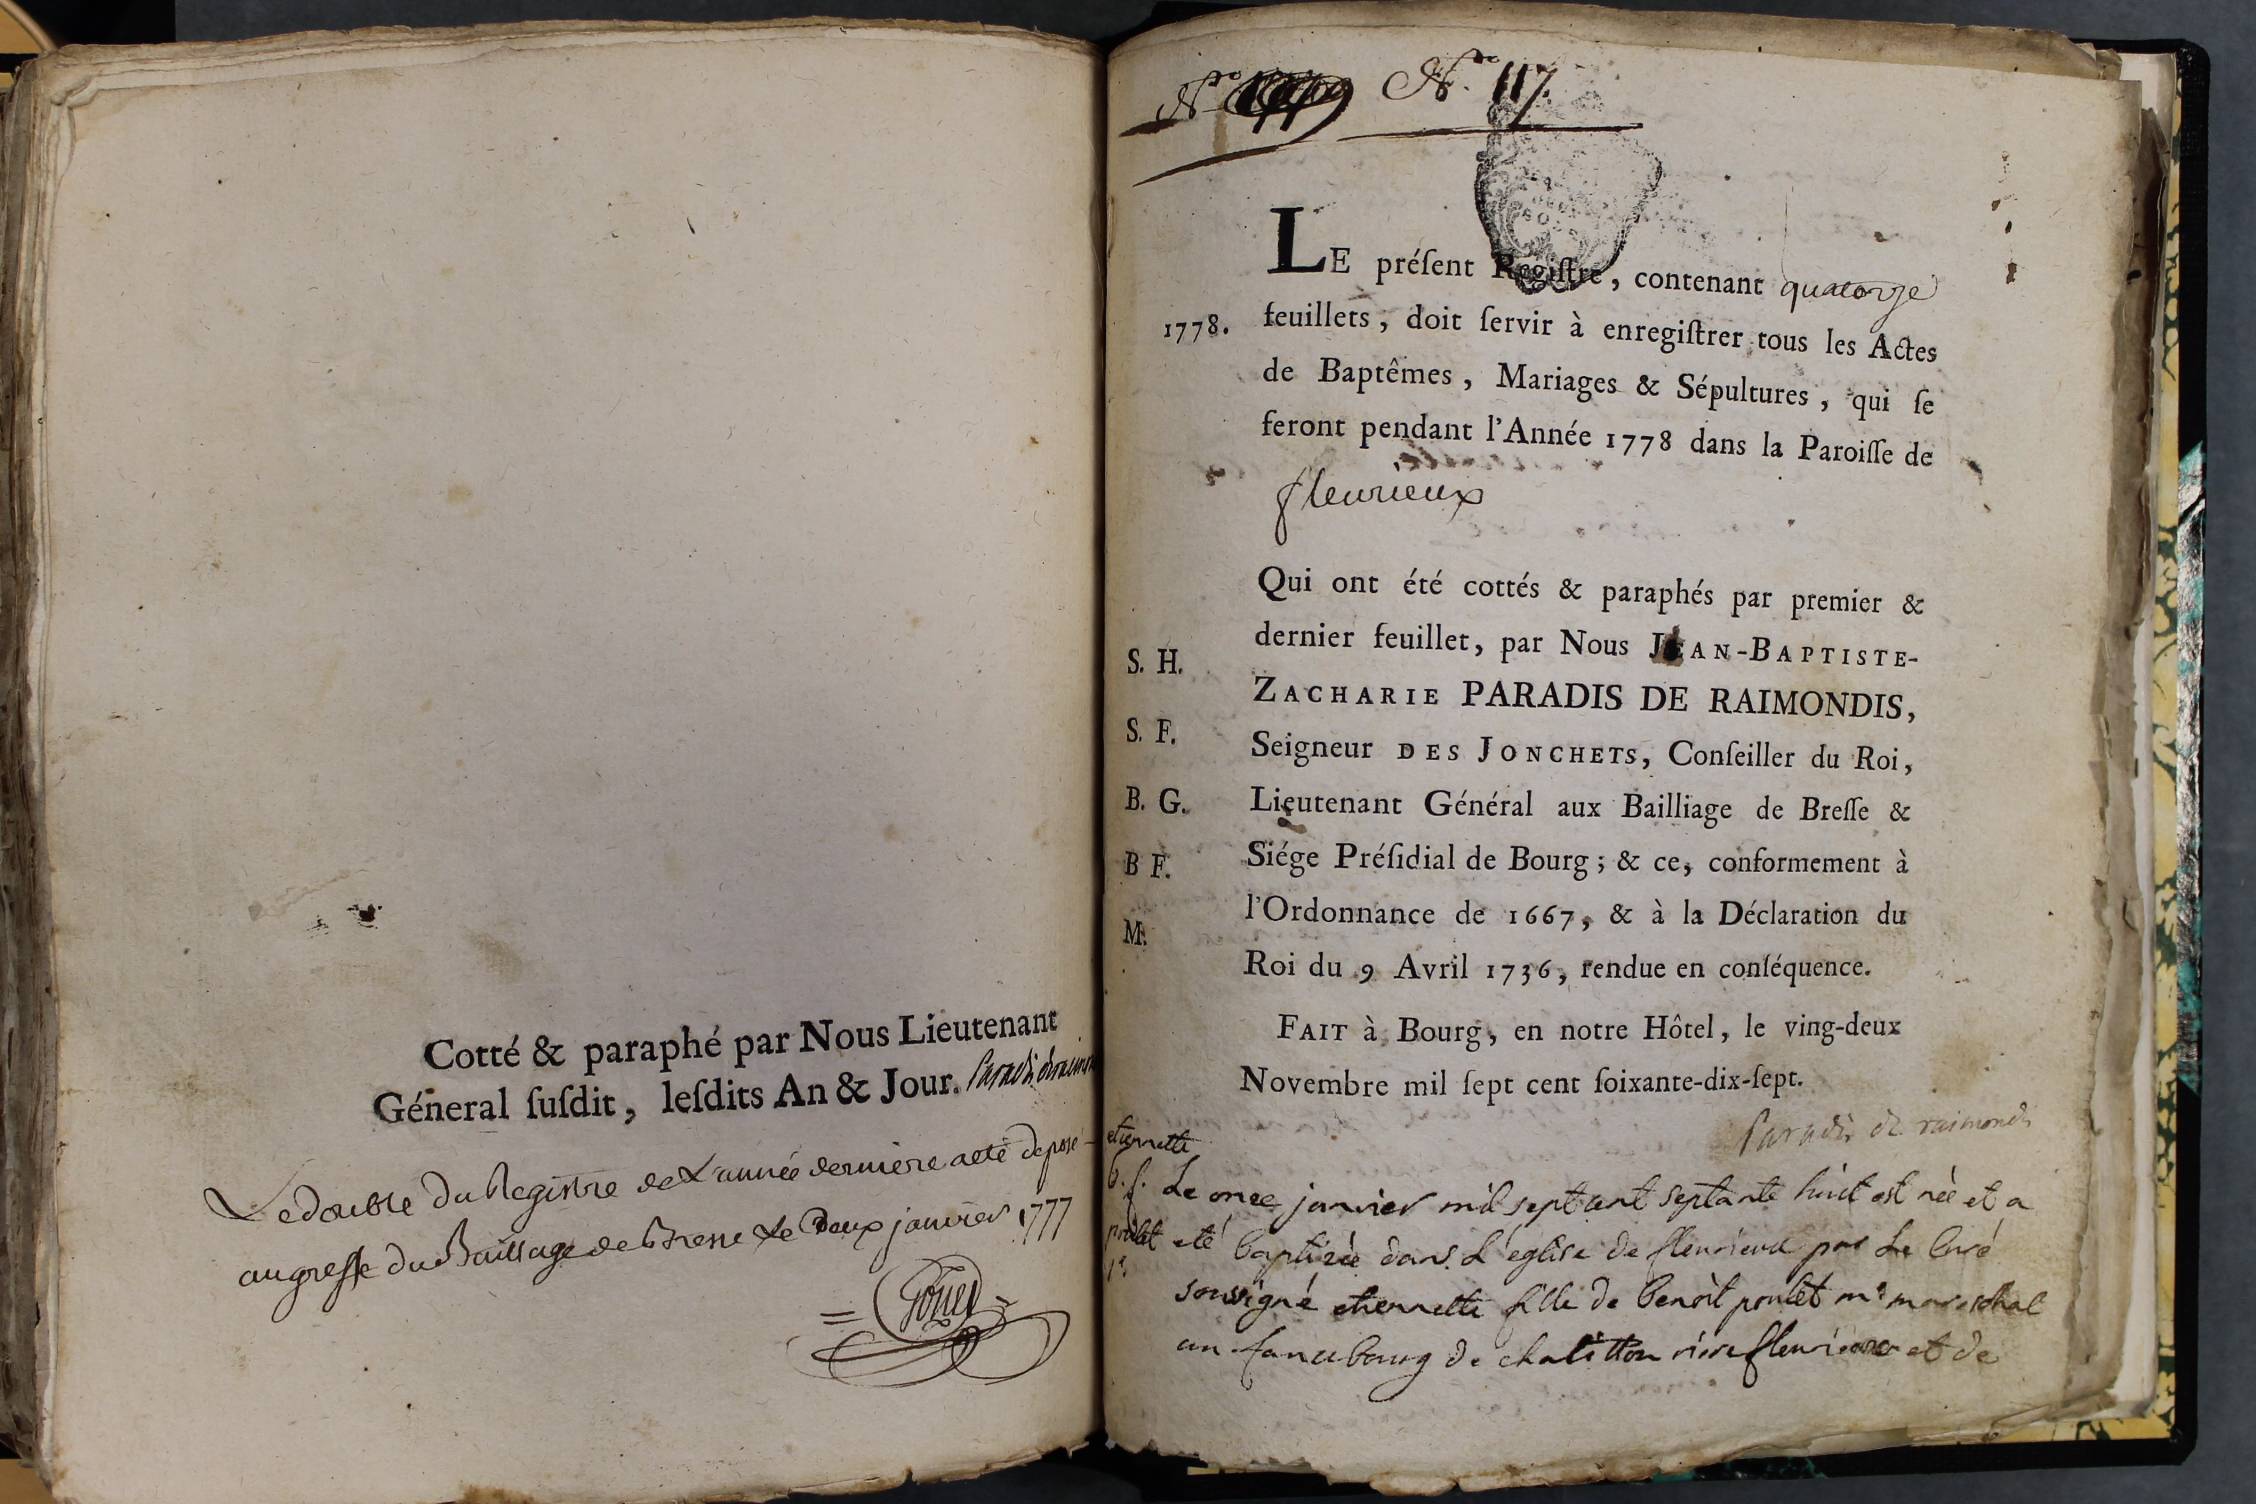 Cotté & paraphé par Nous Lieutenant
Géneral ſuſdit, leſdits An & Jour. Paradis de raimondis
Le double du Registre de L'année derniere a eté deposé
au greffe du Baillage de Bresse Le Deux janvier 1777
Nro Nro 117.
LE préſent Regiſtre, contenant quatorze
1778. feuillets, doit ſervir à enregiſtrer tous les Actes
de Baptêmes, Mariages & Sépultures, qui ſe
feront pendant l'Année 1778 dans la Paroiſſe de
fleurieux
Qui ont été cottés & paraphés par premier &
dernier feuillet, par Nous JEAN-BAPTISTE-
S. H.
ZACHARIE PARADIS DE RAIMONDIS,
S. F.
Seigneur DES JONCHETS, Conſeiller du Roi,
B. G.
Lieutenant Général aux Bailliage de Breſſe &
B F.
Siége Préſidial de Bourg; & ce, conformement à
l'Ordonnance de 1667, & à la Déclaration du
M.
Roi du 9 Avril 1736, rendue en conſéquence.
FAIT à Bourg, en notre Hôtel, le ving-deux
Novembre mil ſept cent ſoixante-dix-ſept.
Paradis de raimondis
etiennette
b. f.
poulet
Le onze janvier mil sept cent septante huict est née et a
eté baptizée dans L'eglise de fleurieux par Le Curé
soussigné etiennette fille de benoît poulet me mareschal
au fauxbourg de chatillon riere fleurieux et de